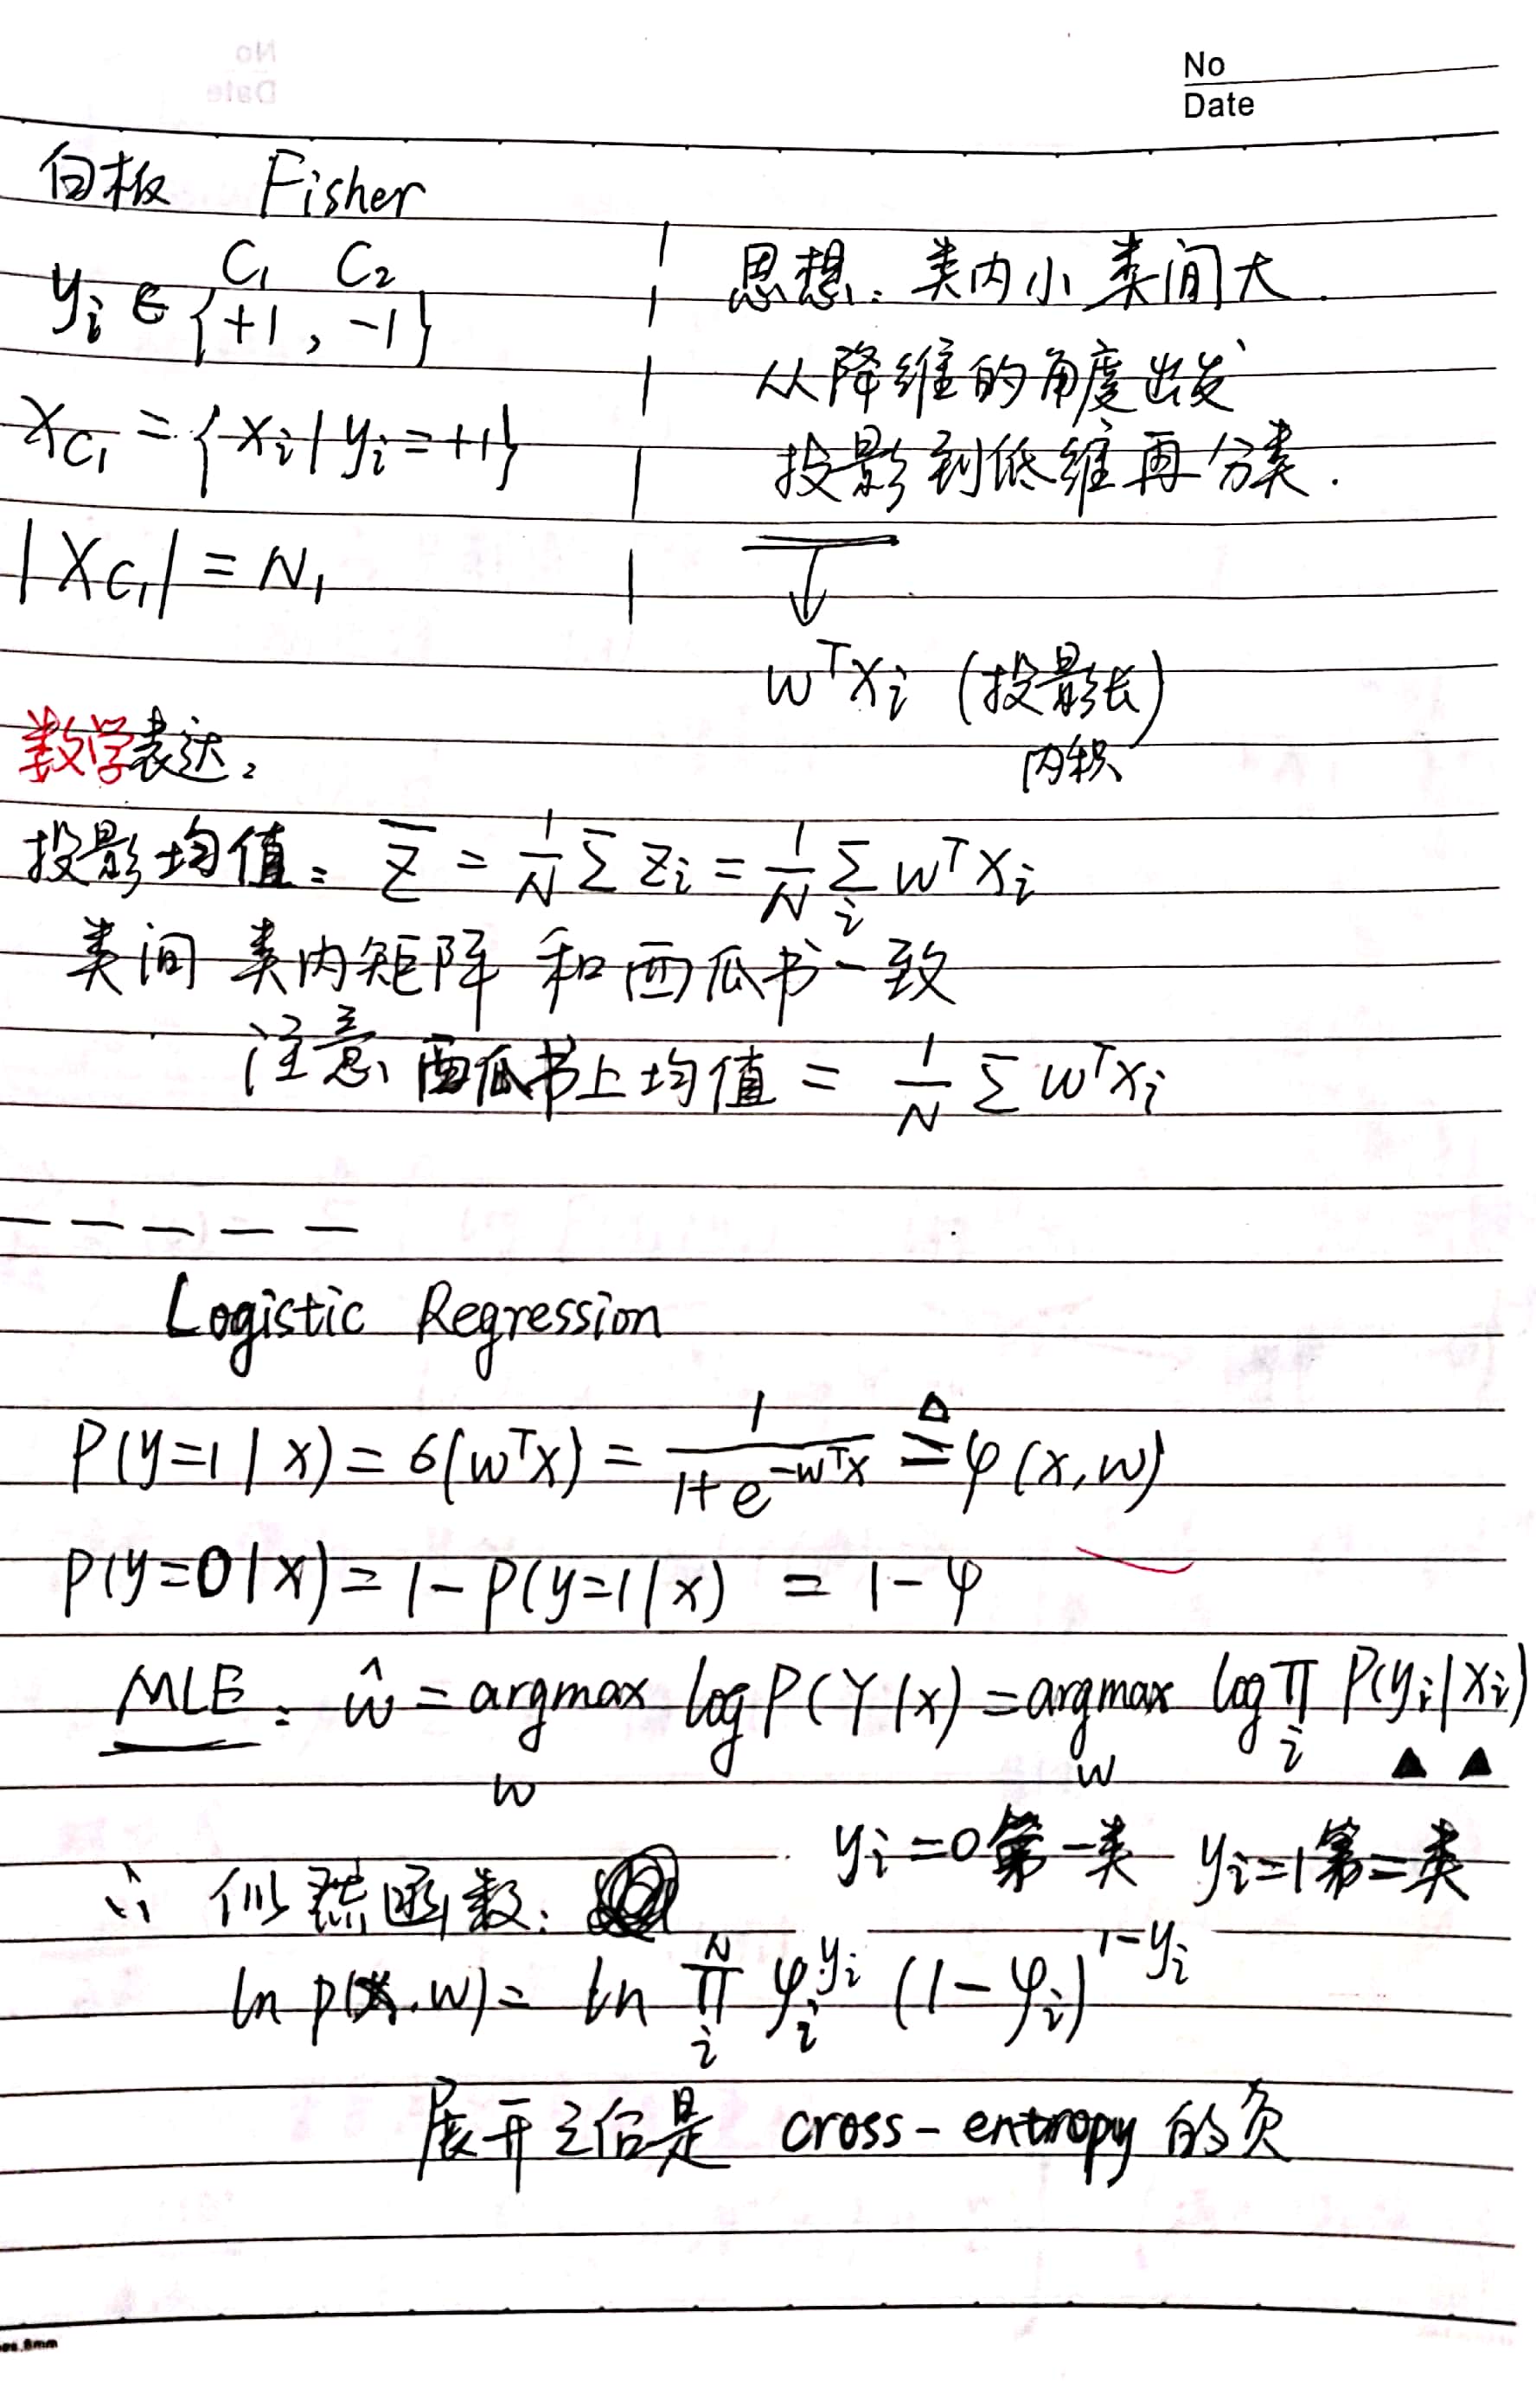 No
Date
白板 Fisher
C₁ C₂
yᵢ ∈ {+1, -1}
X_C₁ = {xᵢ | yᵢ = +1}
|X_C₁| = N₁
思想：类内小 类间大.
从降维的角度出发
投影到低维再分类.
wᵀxᵢ (投影长)
内积
数学表达：
投影均值：z̄ = 1/N Σ zᵢ = 1/N Σᵢ wᵀxᵢ
类间 类内矩阵 和西瓜书一致
注意、西瓜书上均值 = 1/N Σ wᵀxᵢ
Logistic Regression
P(y=1|x) = σ(wᵀx) = 1/(1+e^(-wᵀx)) ≜ φ(x,w)
P(y=0|x) = 1-P(y=1|x) = 1-φ
MLE: ŵ = argmax_w log P(Y|x) = argmax_w log ∏ᵢ P(yᵢ|xᵢ)
▲ ▲
yᵢ=0第一类 yᵢ=1第二类
∴ 似然函数：
ln p(x.w) = ln ∏ᵢᴺ φᵢ^yᵢ (1-φᵢ)^(1-yᵢ)
展开之后是 cross-entropy 的负